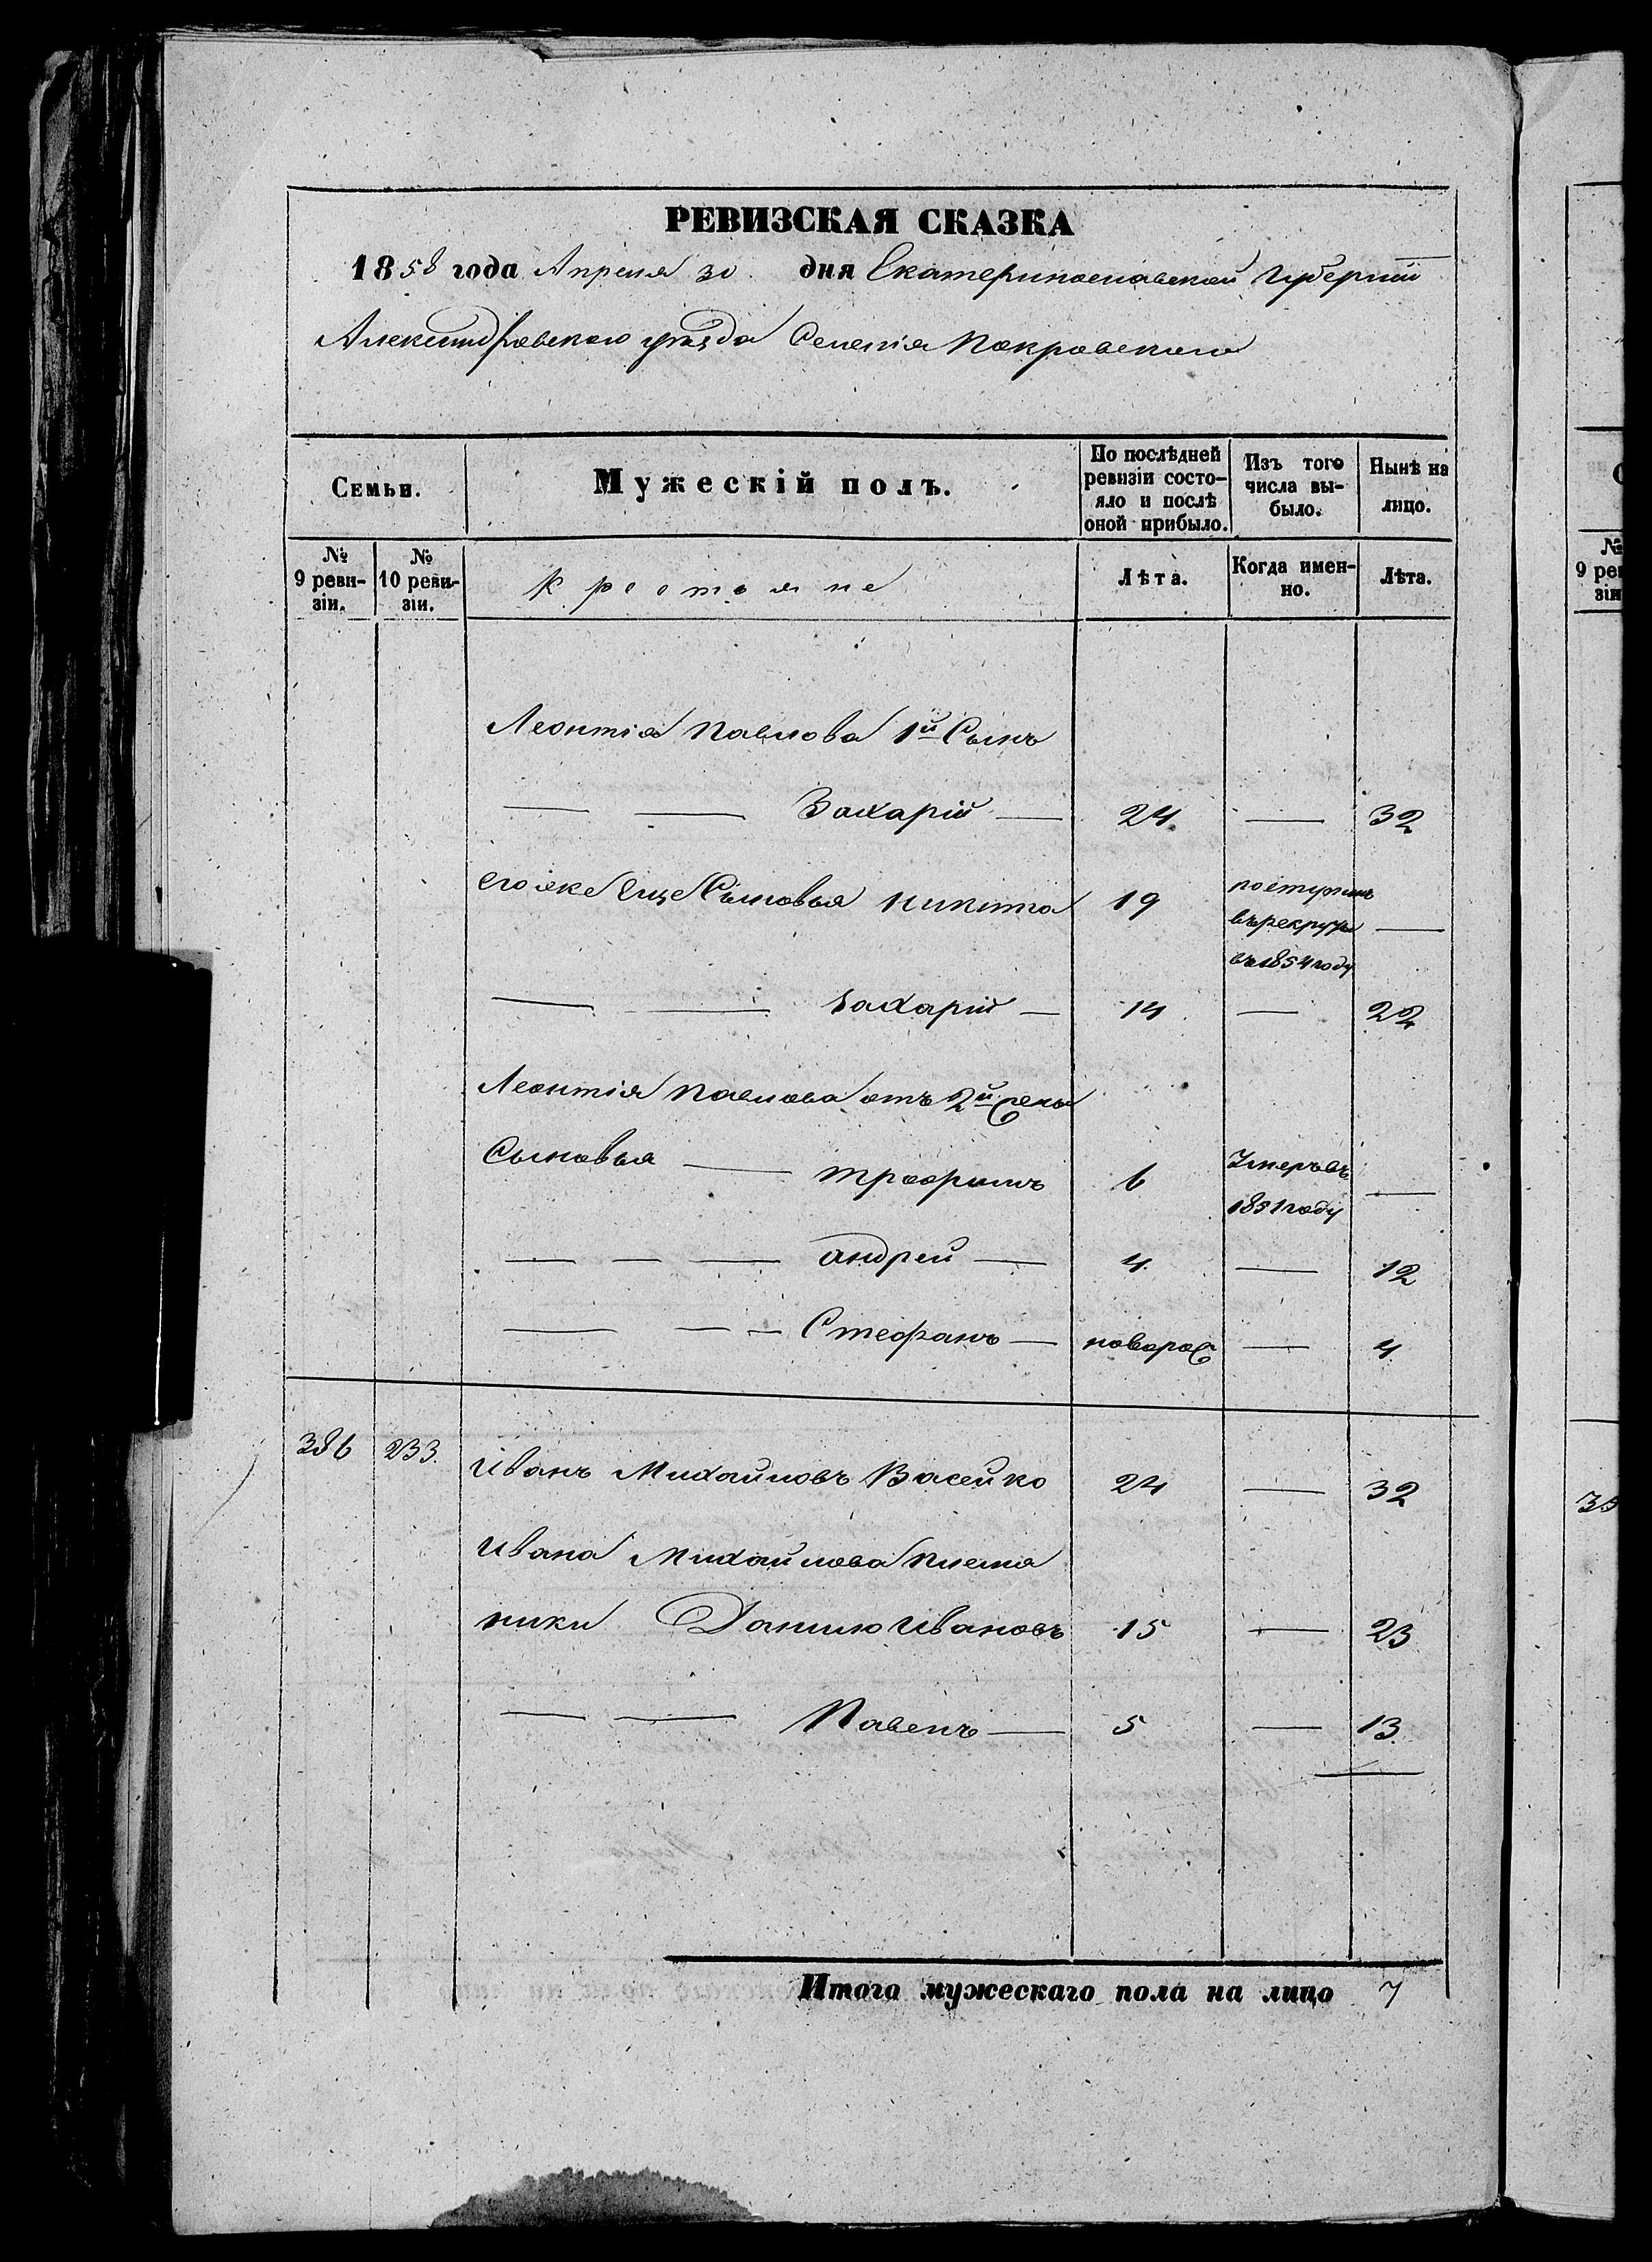 РЕВИЗСКАЯ СКАЗКА
1858 года Апреля 30 дня Екатеринославской Губернiи
Александровскаго уѣзда Селенiя Покровскаго
Семьи.
Мужескiй полъ.
По послѣдней ревизiи состо-
яло и послѣ
оной прибыло.
Изъ того
числа вы-
было.
Нынѣ на
лицо.
№
9 реви-
зiи.
№
10 реви-
зiи.
Крестьяне
Лѣта.
Когда имен-
но.
Лѣта.
Леонтiя Павлова 1й Сынъ
— — Захарiй — 24 — 32
его же еще Сыновья Никита 19 поступилъ
въ рекруты —
въ 1854 году
— — Захарiй — 14 — 22
Леонтiя Павлова отъ 2й жены
Сыновья — Трофимъ 6 Умеръ въ
1851 году —
— — — Андрей — 4 — 12
— — — Стефанъ — новорож — 4
386 233. Иванъ Михайловъ Васейко 24 — 32
Ивана Михайлова племя
ники Данило Ивановъ 15 — 23
— — Павелъ — 5 — 13
Итого мужескаго пола на лицо 7
№
9 рев
зiи